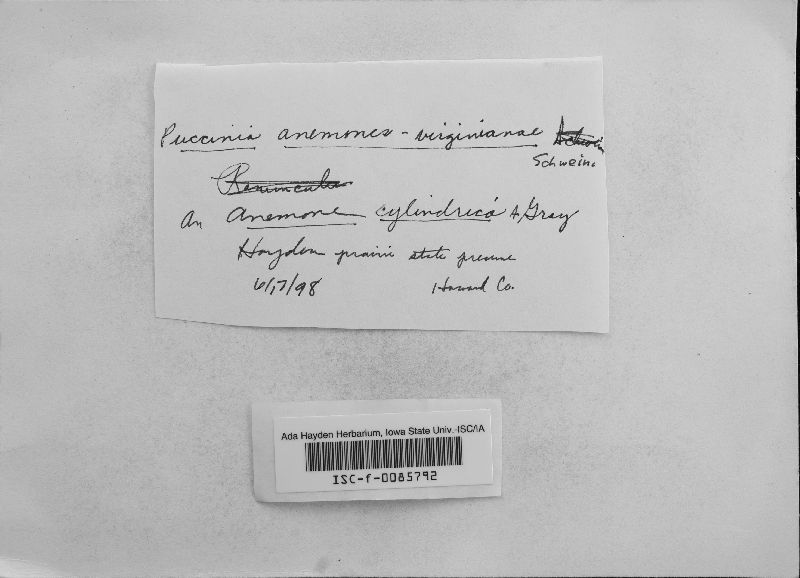 Puccinia anemones-virginianae
Schwein.
An Anemone cylindrica A Gray
Hayden prairie state preserve
6/17/98 Howard Co.
Ada Hayden Herbarium, Iowa State Univ.-ISC/IA
ISC-f-0085792